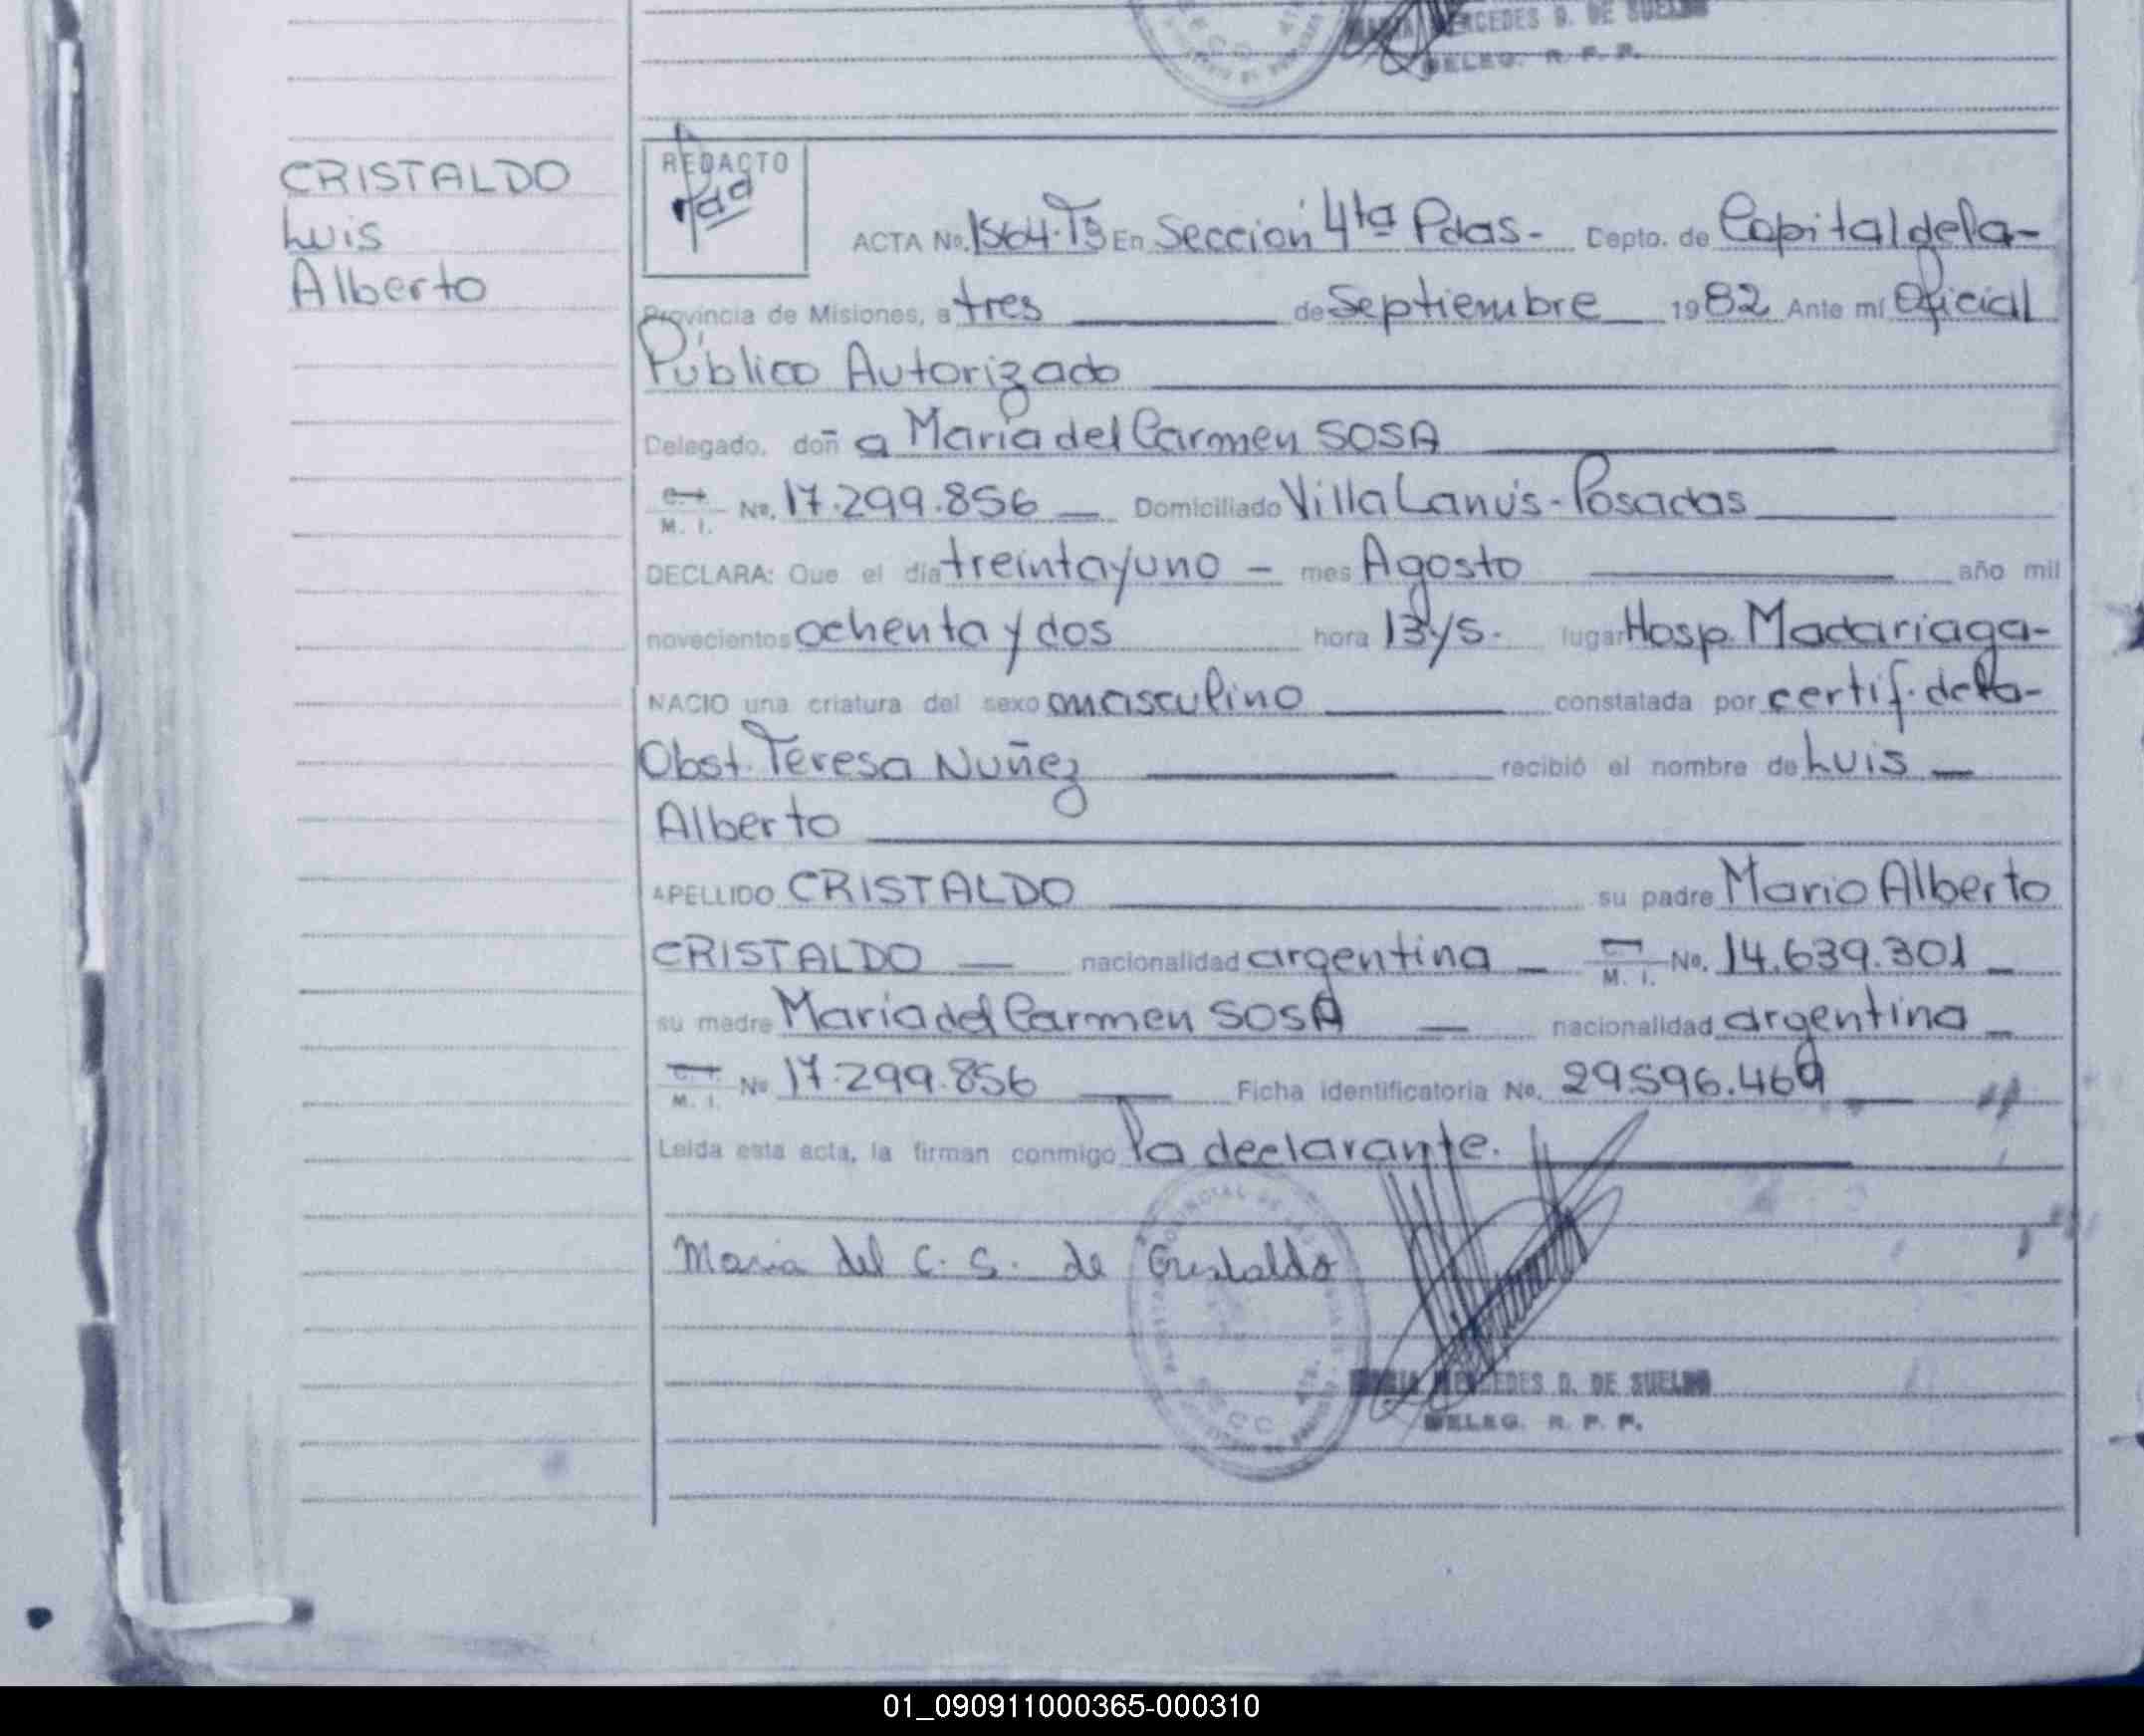 MERCEDES D. DE SUELDO
DELEG. R. P. P.
CRISTALDO
Luis
Alberto
REDACTO
ACTA No. 1564.T3 En Sección 4ta Pdas- Depto. de Capital de la-
Provincia de Misiones, a tres de Septiembre 1982 Ante mí Oficial
Público Autorizado
Delegado, doñ a María del Carmen SOSA
M. I. No. 17.299.856 Domiciliado Villa Lanús-Posadas
DECLARA: Que el día treinta y uno - mes Agosto año mil
novecientos ochenta y dos hora 13y5. lugar Hosp. Madariaga-
NACIO una criatura del sexo masculino constatada por certif. de la-
Obst. Teresa Nuñez recibió el nombre de Luis
Alberto
APELLIDO CRISTALDO su padre Mario Alberto
CRISTALDO nacionalidad argentina M. I. No. 14.639.301
su madre María del Carmen SOSA nacionalidad argentina
M. I. No 17.299.856 Ficha identificatoria No. 29.596.469
Leída esta acta, la firman conmigo la declarante.
Maria del C. S. de Cristaldo
MARIA MERCEDES D. DE SUELDO
DELEG. R. P. P.
01_090911000365-000310